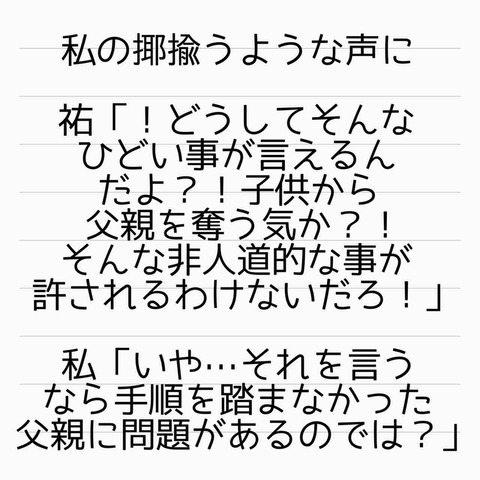 私の揶揄うような声に
祐「！どうしてそんな
ひどい事が言えるん
だよ？！子供から
父親を奪う気か？！
そんな非人道的な事が
許されるわけないだろ！」
私「いや…それを言う
なら手順を踏まなかった
父親に問題があるのでは？」